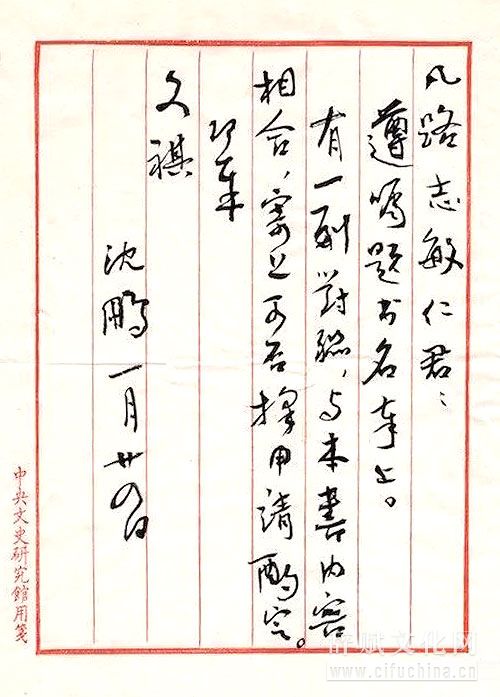 凡路志敏仁君：
遵嘱题书名奉上。
有一副对联，与本书内容
相合，寄上可否採用请酌定。
文祺
沈鹏 一月廿四日
中央文史研究館用箋
辞赋文化网
www.cifuchina.cn